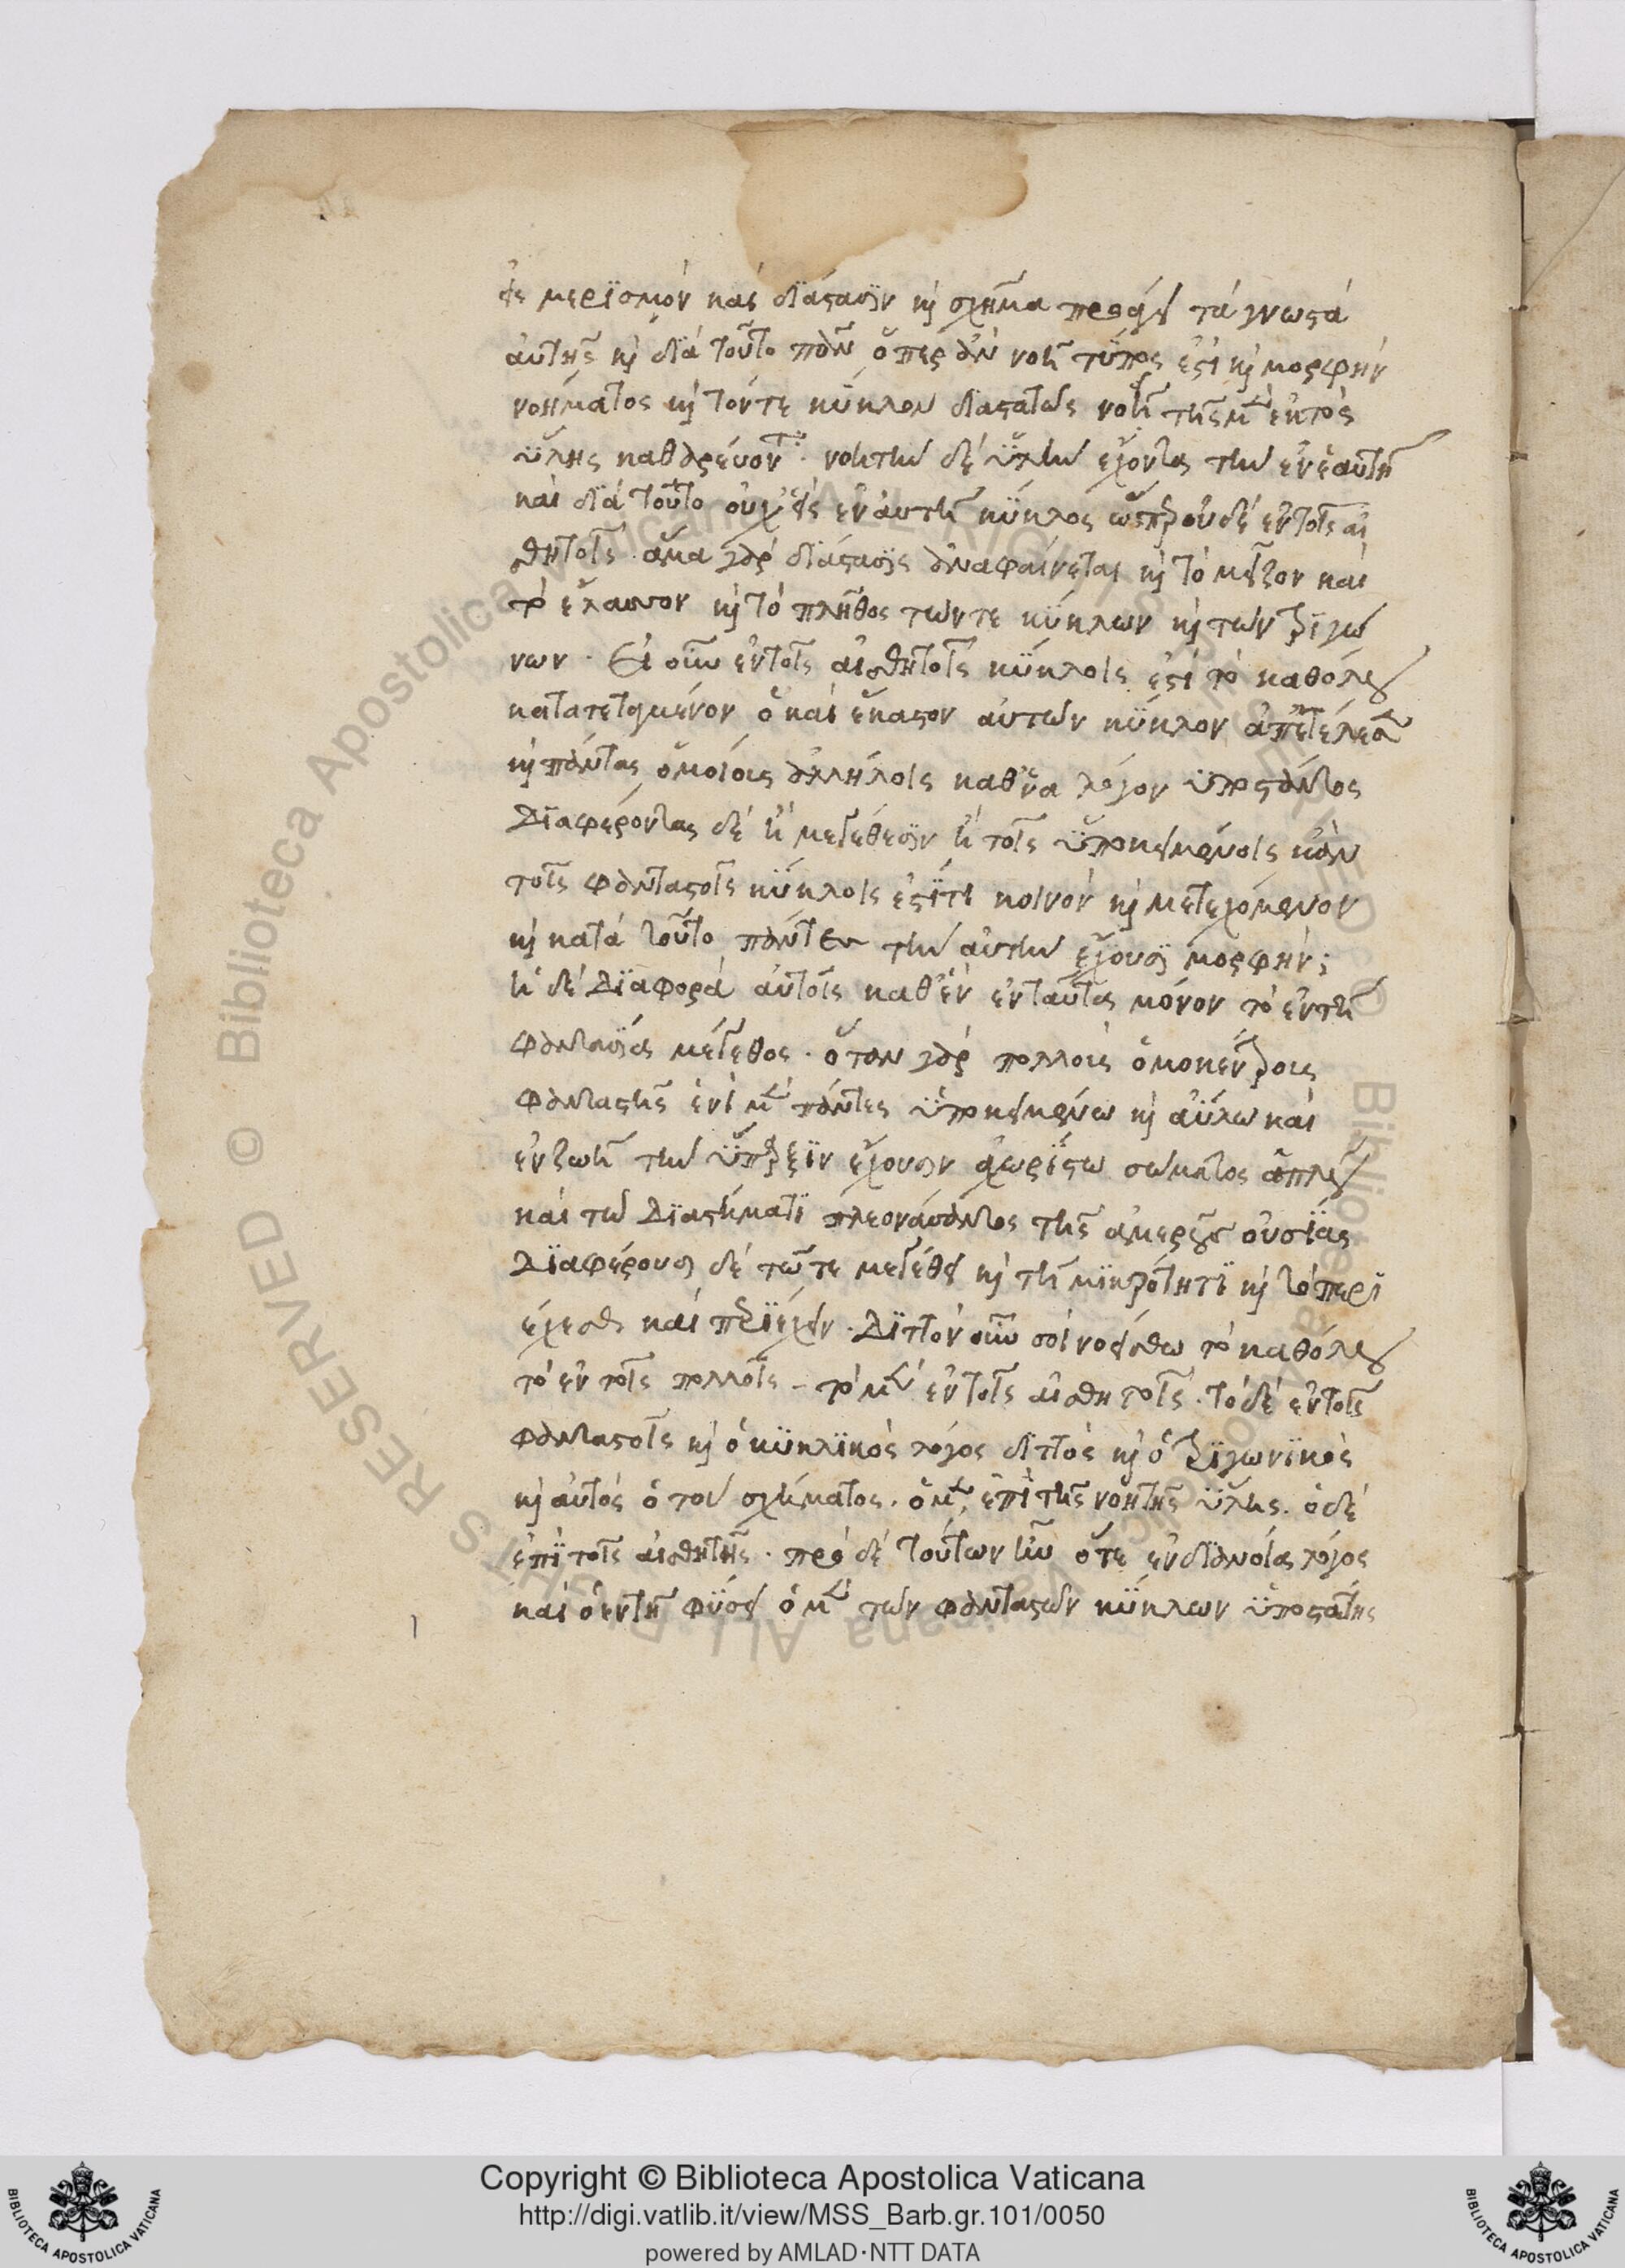 εἰς μερισμὸν καὶ διάστασιν καὶ σχῆμα προάγει τὰ γνωστὰ
αὐτῆς καὶ διὰ τοῦτο πᾶν ὅπερ ἂν νοῇ τύπος ἐστὶ καὶ μορφὴν
νοήματος καὶ τόν τε κύκλον διαστατῶς νοεῖ τῆς μὲν ἐκτὸς
ὕλης καθαρεύοντα · νοητὴν δὲ ὕλην ἔχοντας τὴν ἐν ἑαυτῇ
καὶ διὰ τοῦτο οὐχ εἷς ἐν αὐτῇ κύκλος ὥσπερ οὐδὲ ἐν τοῖς αἰ
σθητοῖς · ἅμα γὰρ διάστασις ἀναφαίνεται καὶ τὸ μεῖζον καὶ
τὸ ἔλασσον καὶ τὸ πλῆθος τῶν τε κύκλων καὶ τῶν τριγώ
νων · Εἰ οὖν ἐν τοῖς αἰσθητοῖς κύκλοις ἐστὶ τὸ καθόλου
κατατεταγμένον ὃ καὶ ἕκαστον αὐτῶν κύκλον ἀπετέλεσε
καὶ πάντας ὁμοίους ἀλλήλοις καθ' ἕνα λόγον ὑποστάντος
Διαφέροντας δὲ ἢ μεγέθεσιν ἢ τοῖς ὑποκειμένοις κἀν
τοῖς φανταστοῖς κύκλοις ἐστί τι κοινὸν καὶ μετεχόμενον
καὶ κατὰ τοῦτο πάντες τὴν αὐτὴν ἔχουσι μορφήν;
ἡ δὲ Διαφορὰ αὐτοῖς καθ' ἓν ἐνταῦτας μόνον τὸ ἐν τῇ
φαντασίας μέγεθος · ὅταν γὰρ πολλοὺς ὁμοκέντρους
φαντασθῇς ἑνὶ μὲν πάντες ὑποκειμένω καὶ ἀΰλω καὶ
ἐν ζωῇ τὴν ὕπαρξιν ἔχουσιν ἀχωρίστω σώματος ἁπλοῦ
καὶ τῶ Διαστήματι πλεονάσαντος τῆς ἀμεροῦς οὐσίας
Διαφέρουσι δὲ τῶ τε μεγέθει καὶ τῇ μικρότητι καὶ τὸ περι
έχεσθαι καὶ περιέχειν · Διττὸν οὖν σοι νοείσθω τὸ καθόλου
τὸ ἐν τοῖς πολλοῖς – τὸ μὲν ἐν τοῖς αἰσθητοῖς · τὸ δὲ ἐν τοῖς
φανταστοῖς καὶ ὁ κυκλικὸς λόγος διττὸς καὶ ὁ τριγωνικὸς
καὶ αὐτὸς ὁ τοῦ σχήματος · ὁ μὲν ἐπὶ τῆς νοητῆς ὕλης · ὁ δὲ
ἐπὶ τοῖς αἰσθητῆς · πρὸ δὲ τούτων ἦν ὅτε ἐν διανοίας λόγος
καὶ ὁ ἐν τῇ φύσει ὁ μὲν τῶν φανταστῶν κύκλων ὑποστάτης
Copyright © Biblioteca Apostolica Vaticana
http://digi.vatlib.it/view/MSS_Barb.gr.101/0050
powered by AMLAD·NTT DATA